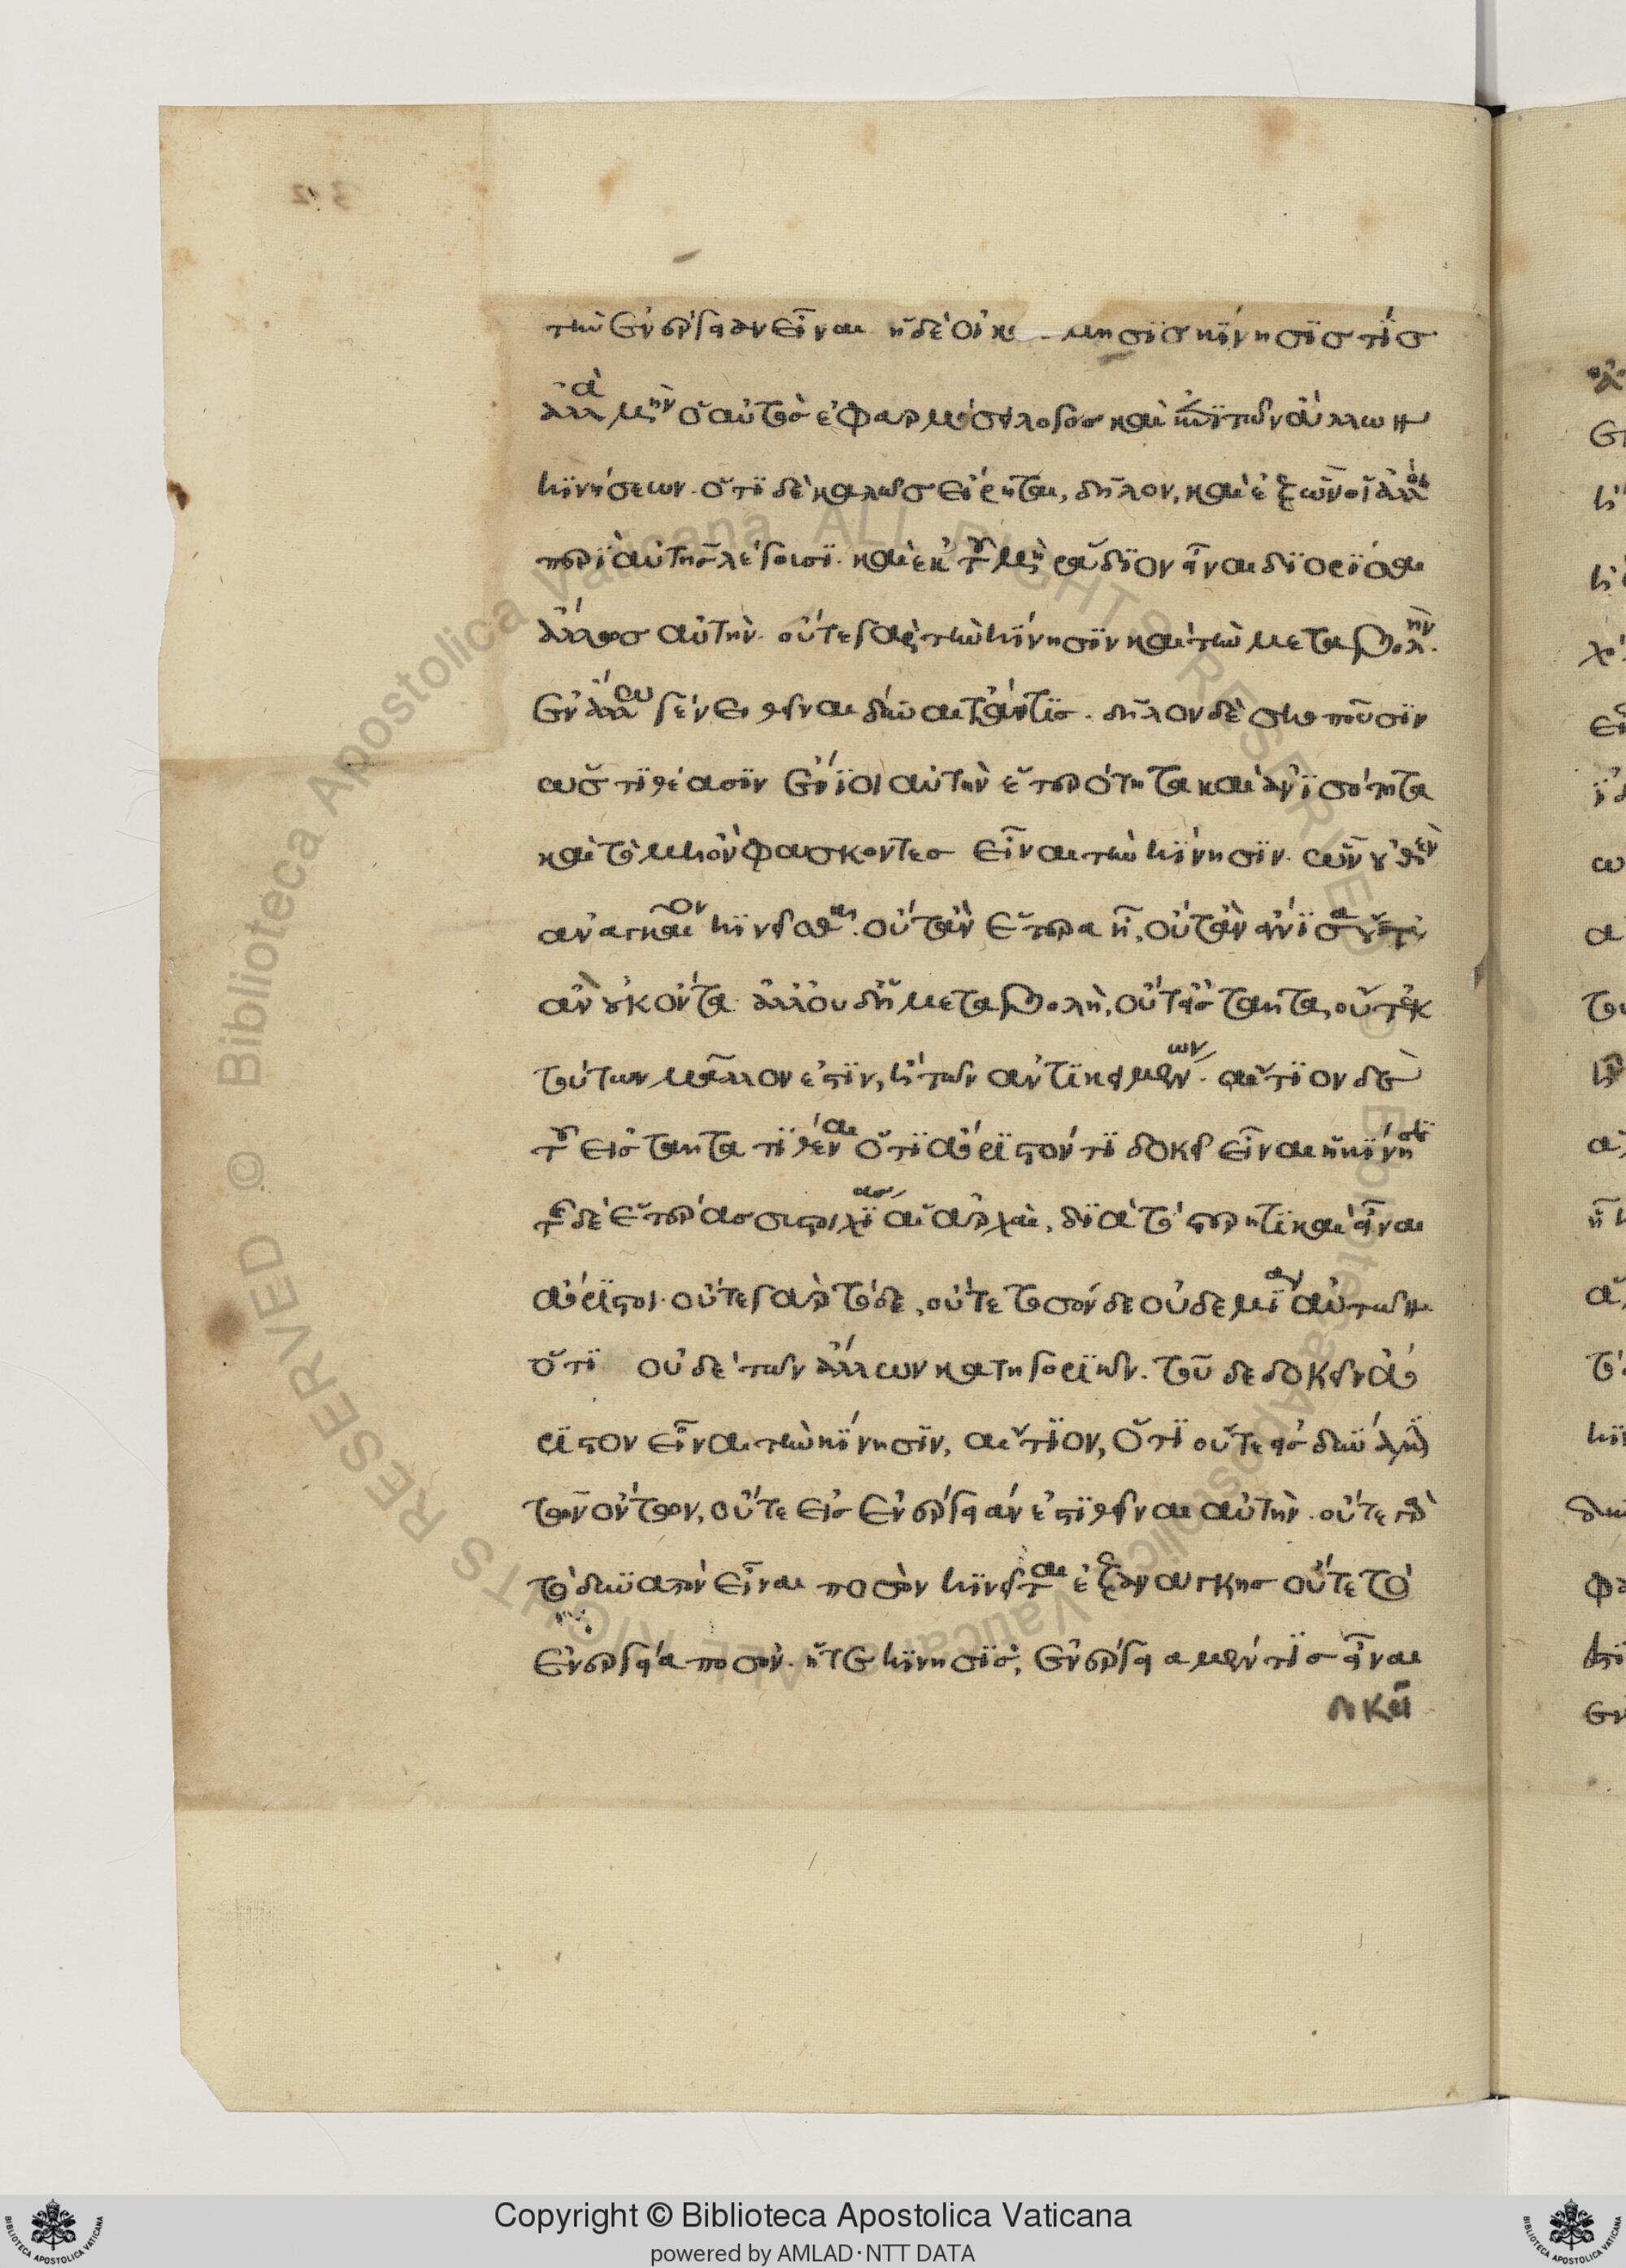 τὴν ἐνέργειαν εἶναι ἡ δὲ οἰκ μησϊσ κϊνησϊσ τίσ
ἀλλὰ μὴν ὁ αὐτὸσ ἐφαρμόσει λόγοσ καὶ ἐπὶ τῶν ἄλλων
κϊνήσεων. ὅτϊ δὲ καλῶσ εἴρηται, δῆλον, καὶ ἐξ ὧν οἱ ἄλλοι
περὶ αὐτῆσ λέγουσϊ. καὶ ἐκ τοῦ μὴ ῥάδϊον εἶναι δϊορίσαι
ἄλλωσ αὐτήν. οὔτε γὰρ τὴν κίνησϊν καὶ τὴν μεταβολὴν
ἐν ἄλλω γένει θεῖναι δύναιτ' ἄν τϊσ. δῆλον δὲ σκοποῦσϊν
ὡσ τϊθέασϊν ἔνϊοι αὐτὴν ἑτερότητα καὶ ἀνϊσότητα
καὶ τὸ μὴ ὂν φάσκοντεσ εἶναι τὴν κίνησϊν. ὧν οὐδὲν
ἀναγκαῖον κϊνεῖσθαι. οὔτ' ἂν ἕτερα ἦ, οὔτ' ἂν ἄνϊσα οὔτ'
ἂν οὐκ ὄντα. ἀλλ' οὐδ' ἡ μεταβολὴ, οὔτ' εἰσ ταῦτα, οὔτ' ἐκ
τούτων μᾶλλον ἐστϊν, ἢ τῶν ἀντϊκειμένων. αἴτϊον δὲ
τοῦ εἰσ ταῦτα τϊθέναι ὅτϊ ἀόρϊστόν τϊ δοκεῖ εἶναι ἡ κίνησϊσ
τῆσ δὲ ἑτέρασ συστοιχίασ αἱ ἀρχαὶ, δϊὰ τὸ στερητϊκαὶ εἶναι
ἀόρϊστοι. οὔτε γὰρ τόδε, οὔτε τοιόνδε οὐδεμία αὐτῶν
ὅτϊ οὐδὲ τῶν ἄλλων κατηγορϊῶν. τοῦ δὲ δοκεῖν ἀό
ρϊστον εἶναι τὴν κίνησϊν, αἴτϊον, ὅτϊ οὔτε εἰσ δύναμϊν
τῶν ὄντων, οὔτε εἰσ ἐνέργειαν ἐστϊ θεῖναι αὐτήν. οὔτε γὰρ
τὸ δυνατὸν εἶναι ποσὸν κϊνεῖται ἐξ ἀνάγκησ οὔτε τὸ
ἐνεργεία ποσὸν. ἥ τε κίνησϊσ, ἐνέργεια μέν τϊσ εἶναι
δοκεῖ